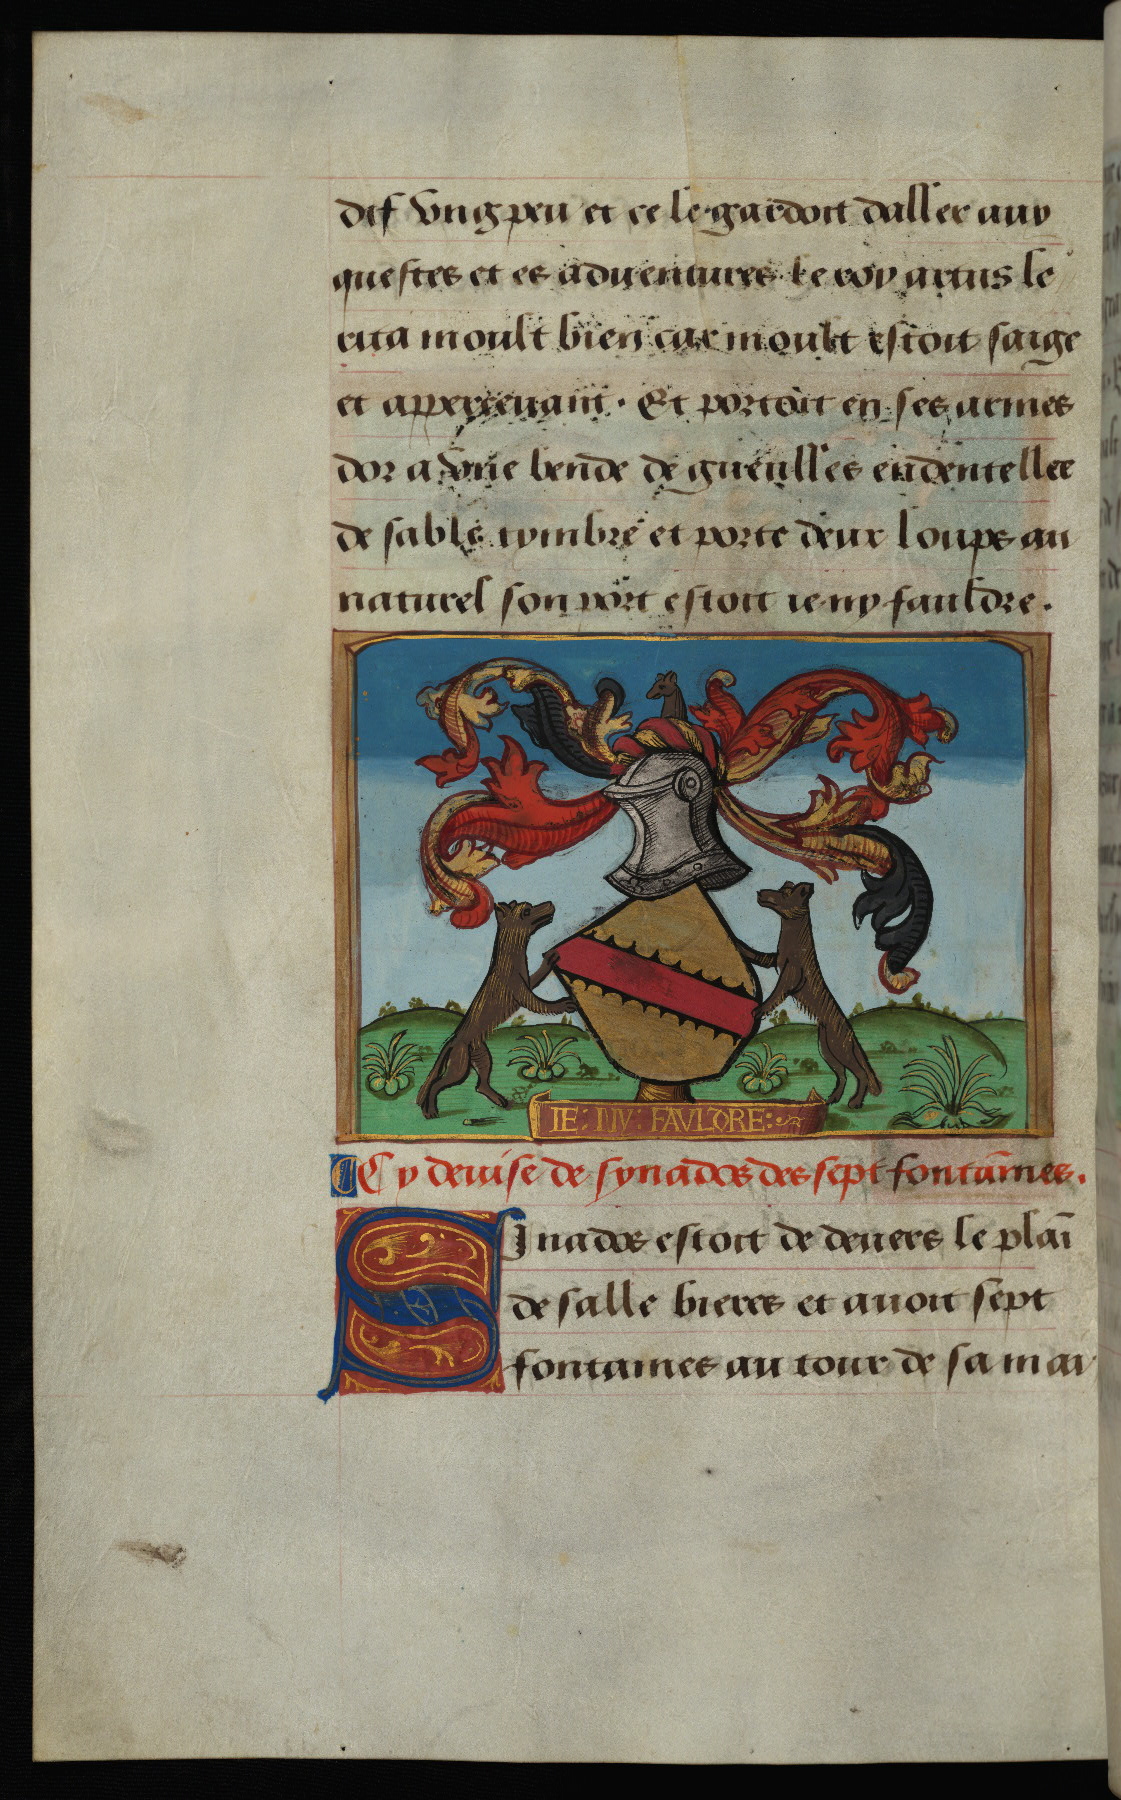 dif vng peu et ce le gardoit daller aux
questes et es aduentures le roy artus le
cita moult bien car moult estoit saige
et apperceuant. Et portoit en ses armes
dor a vne bende de gueulles endentellee
de sable tymbre et porte deux loups au
naturel son port estoit ie ny fauldre.
IE : NY : FAVLDRE :
Cy deuise de synados des sept fontaīnes.
Sinados estoit de deuers le plaī
de salle bieres et auoit sept
fontaines au tour de sa mai